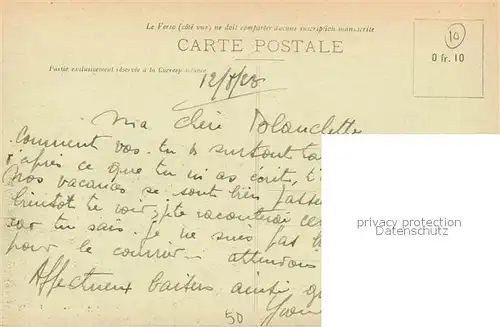 Le Verso (côté vue) ne doit comporter aucune inscription manuscrite
CARTE POSTALE
10
0 fr. 10
Partie exclusivement réservée à la Correspondance
12/8/23
Ma chère Blanchette
Comment vas-tu
d'après ce que tu m'as écrit,
Nos vacances se sont bien passées
bientôt te voir, je te raconterai
car tu sais je ne suis pas
pour le courrier. attendons
Affectueux baisers ainsi
50
privacy protection
www.ansichtskarten-center.de